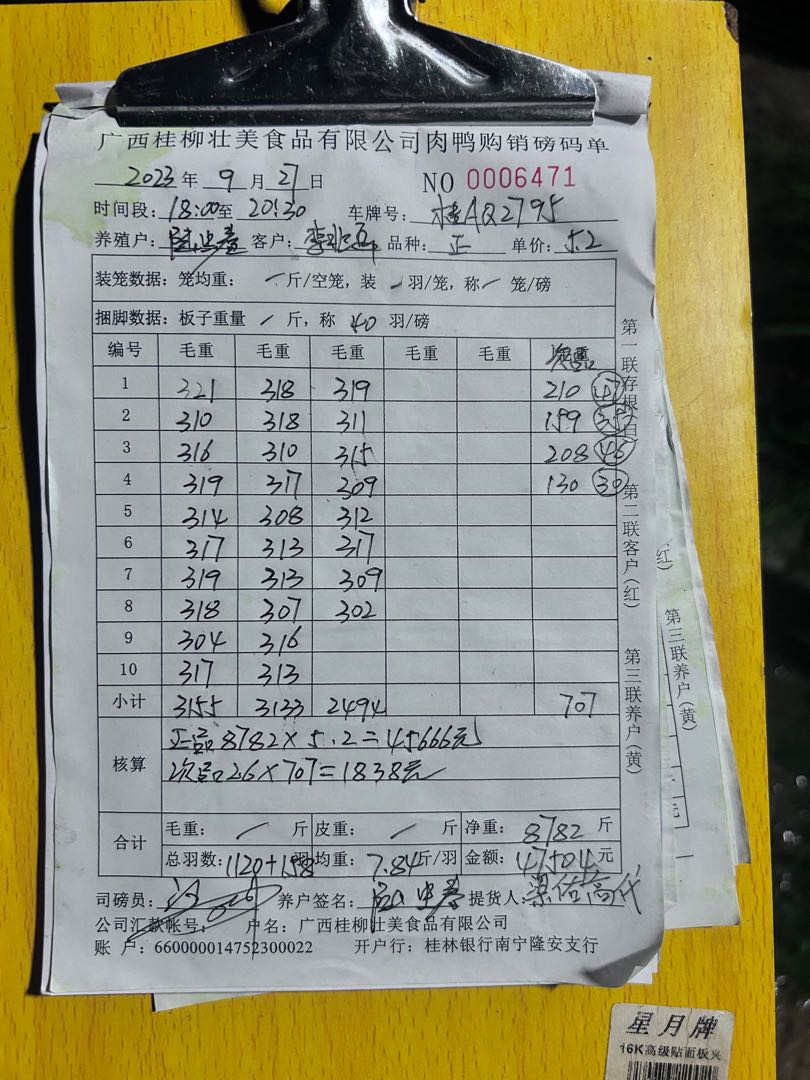 广西桂柳壮美食品有限公司肉鸭购销磅码单
2023年 9月 27日 NO 0006471
时间段：18:00至 20:30 车牌号：桂AQ2795
养殖户： 客户： 品种：正 单价：5.2
装笼数据：笼均重：/斤/空笼，装/羽/笼，称/笼/磅
捆脚数据：板子重量/斤，称 40 羽/磅
编号 毛重 毛重 毛重 毛重 毛重 次品
1 321 318 319 210 47
2 310 318 311 159 35
3 316 310 315 208 46
4 319 317 309 130 30
5 314 308 312
6 317 313 317
7 319 313 309
8 318 307 302
9 304 316
10 317 313
小计 3155 3133 2494 707
核算 正品8782×5.2=45666元
次品2.6×707=1838元
合计 毛重：/斤 皮重：/斤 净重：8782斤
总羽数：1120+158 均重：7.84斤/羽 金额：47504元
司磅员： 养户签名： 提货人：
公司汇款帐号： 户名：广西桂柳壮美食品有限公司
账 户：660000014752300022 开户行：桂林银行南宁隆安支行
第一联存根
第二联客户(红)
第三联养户(黄)
红)
第三联养户(黄)
元
星月牌
16K高级贴面板夹